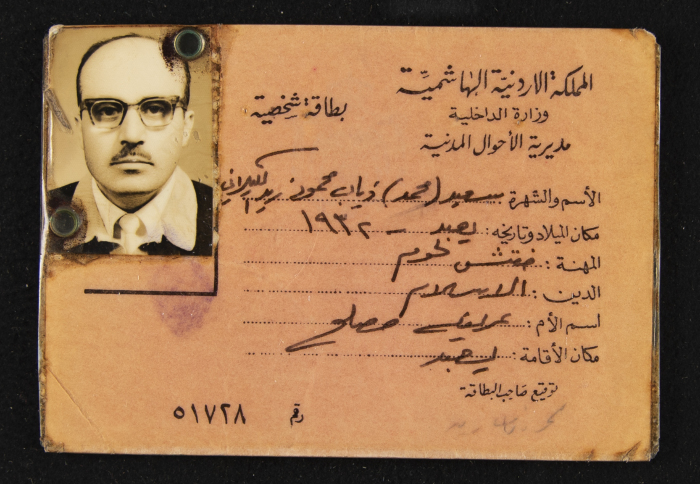 المملكة الاردنيّة الهاشميّة
وزارة الداخلية
بطاقة شخصية
مديرية الأحوال المدنية
الأسم والشهرة: سعيد (محمد) ذياب محمود زيد الكيلاني
مكان الميلاد وتاريخه: يعبد - ١٩٣٢
المهنة: مفتش لحوم
الدين: الاسلام
اسم الأم: مصلح
مكان الأقامة: يعبد
توقيع صاحب البطاقة
رقم ٥١٧٢٨